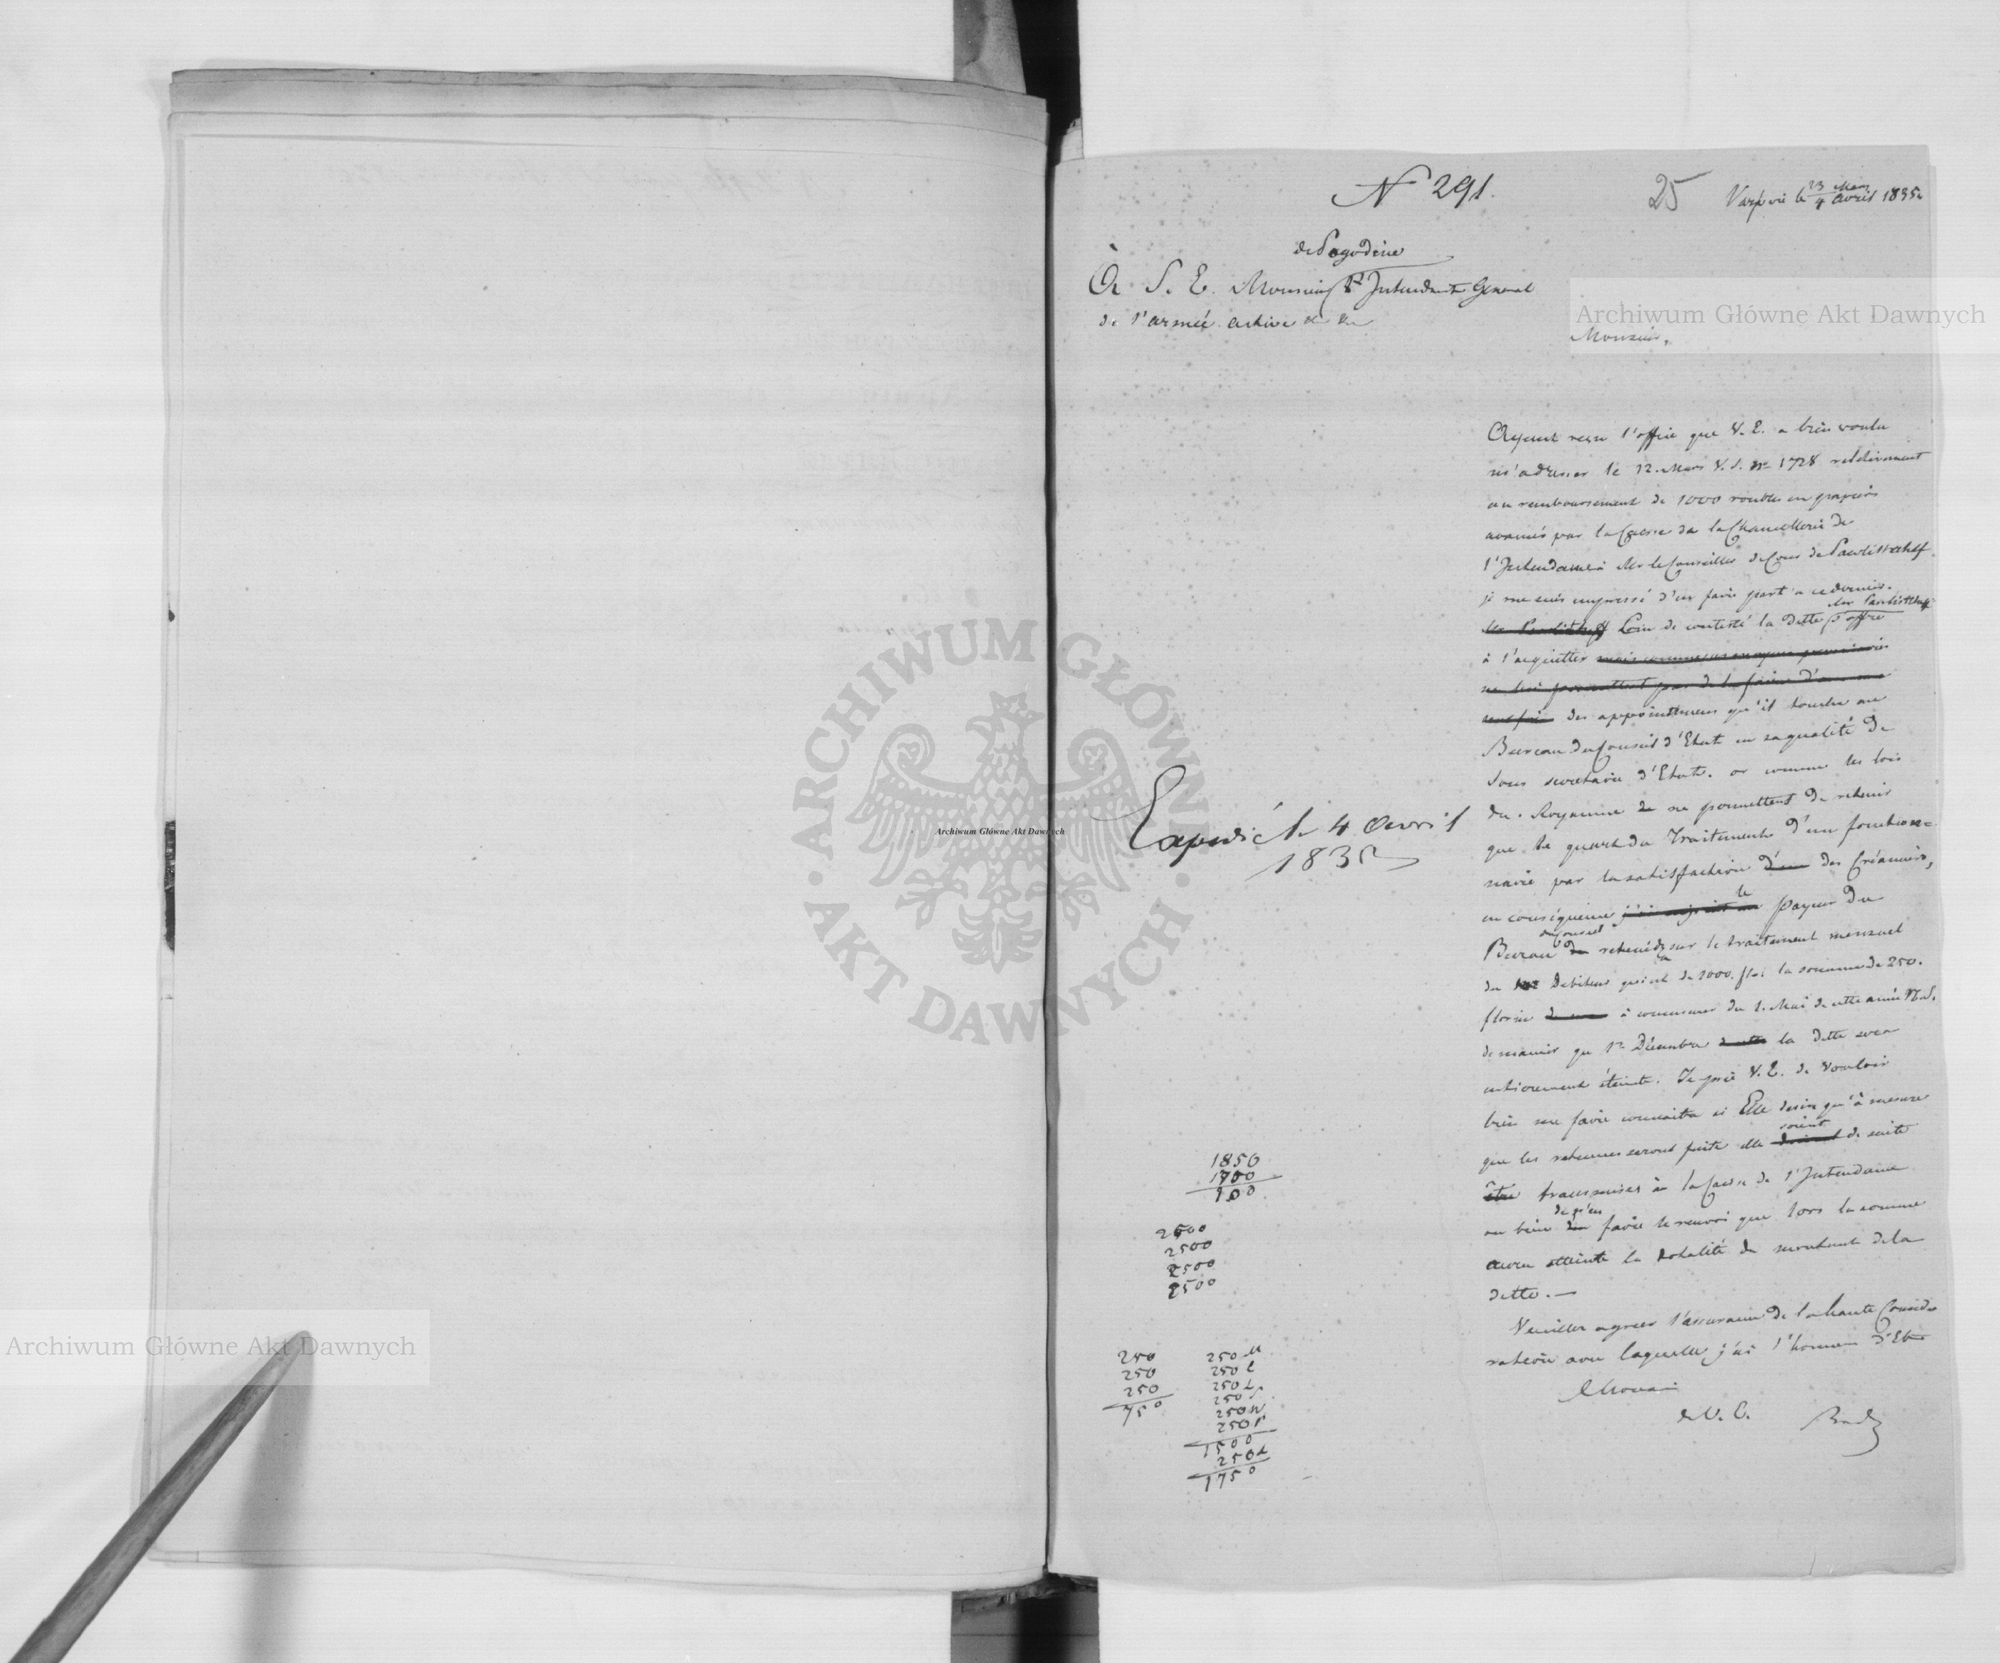 N 291.
25
Varsovie le 23 Mars / 4 Avril 1835
de Pogodine
A S. E. Monsieur l'Intendant General
de l'armée active &c &c
Monsieur,
Ayant reçu l'office que V. E. a bien voulu
m'adresser le 12. Mars V. S. Nr 1728 relativement
au remboursement de 1000 roubles en papiers
avancés par la Caisse de la Chancellerie de
l'Intendance à Mr le Conseiller de Cour de Pawlistcheff
je me suis empressé d'en faire part a ce dernier.
Mr Pawlistcheff
Mr Pawlistcheff Loin de contesté la dette s'offre
à l'acquitter mais comme ses moyens pecuniaires
ne lui permettent pas de le faire d'une
des appointemens qu'il touche au
Bureau du Conseil d'Etat en sa qualité de
Sous secretaire d'Etat. or comme les lois
du Royaume ne permettent de retenir
que le quart du Traitement d'un fonction=
naire par la satisfaction des Créanciers,
le
en conséquence payeur du
du Conseil
Bureau retiendra sur le traitement mensuel
du Debiteur qui est de 1000. fl: la somme de 250.
florin à commencer du 1. Mai de cette année N. S.
de manier qu 1r Décembre la dette sera
entierement éteinte. Je prie V. E. de vouloir
bien me faire connaitre si Elle desire qu'à mesure
soient
que les retenues seront faite elle de suite
être transmises à la Caisse de l'Intendance
de n'en
ou bien faire le renvoi que lors la somme
aura atteinte la totalité du montant de la
dette. —
Veuillez agreer l'assurance de la haute Conside
ration avec laquelle j'ai l'honneur d'Etre
de V. E.
Expedié le 4 Avril
1835
1850
1700
100
2500
2500
2500
2500
250
250
250
750
250 M
250
250
250
250 N
250
1500
250
1750
Archiwum Główne Akt Dawnych
Archiwum Główne Akt Dawnych
Archiwum Główne Akt Dawnych
ARCHIWUM GŁÓWNE · AKT DAWNYCH ·